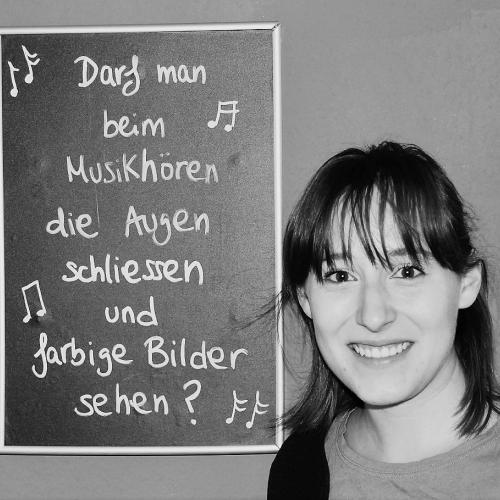 Darf man
beim
Musikhören
die Augen
schliessen
und
farbige Bilder
sehen?